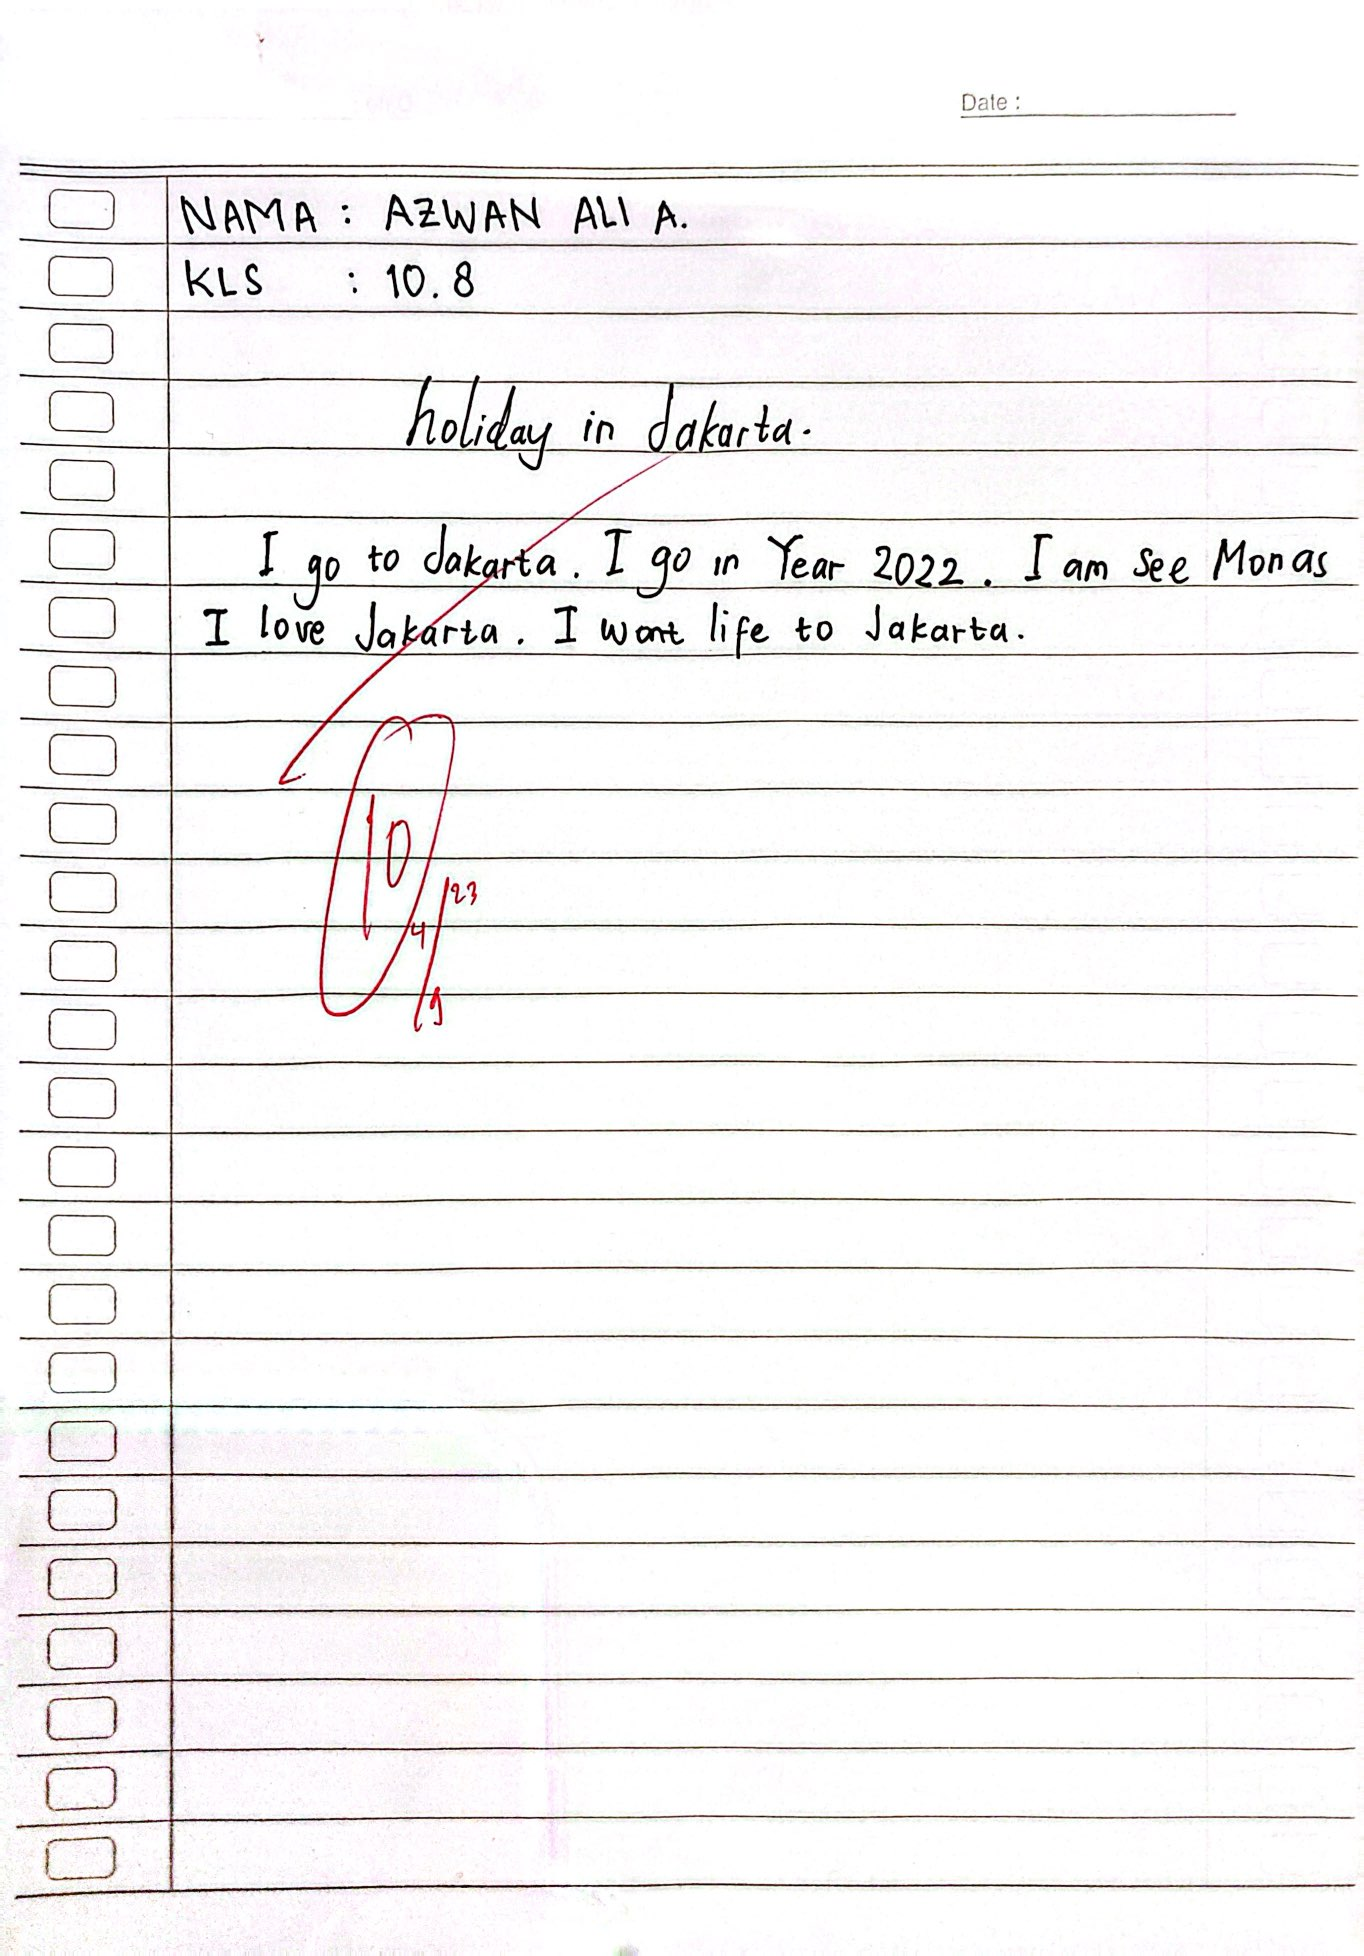 Date :
NAMA : AZWAN ALI A.
KLS : 10.8
holiday in Jakarta.
I go to Jakarta. I go in Year 2022. I am see Monas
I love Jakarta. I want life to Jakarta.
10
4/9 23